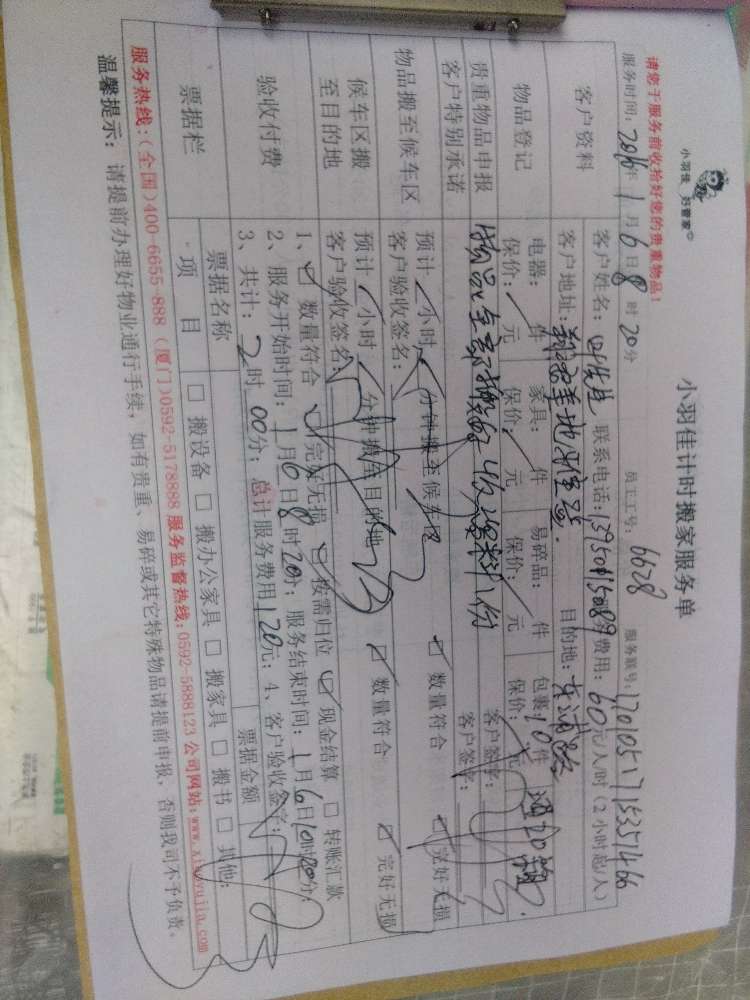 小羽佳 好管家
小羽佳计时搬家服务单
请您于服务前收拾好您的贵重物品！
员工工号：6628 服务账号：
服务时间：2016年1月6日8时20分
客户资料
客户姓名： 联系电话： 费用：60元/人/时（2小时起/人）
客户地址： 目的地：
物品登记
电器： 件 家具： 件 易碎品： 件 包裹：10件
保价： 元 保价： 元 保价： 元 保价： 元
贵重物品申报 客户签字：
客户特别承诺 客户签字：
物品搬至候车区
预计： 小时 分钟搬至候车区 ☑ 数量符合 ☑ 完好无损
客户验收签名：
候车区搬至目的地
预计： 小时 分钟搬至目的地 ☑ 数量符合 ☑ 完好无损
客户验收签名：
验收付费
1、☑ 数量符合 ☑ 完好无损 ☑ 按需归位 ☑ 现金结算 □ 转账汇款
2、服务开始时间：1月6日8时20分；服务结束时间：1月6日10时20分；
3、共计：2时00分；总计服务费用120元；4、客户验收签字：
票据栏
票据名称 票据金额
项目 □ 搬设备 □ 搬办公家具 □ 搬家具 □ 搬书 □ 其他：
服务热线：（全国）400-6655-888（厦门）0592-5178888 服务监督热线：0592-5888123 公司网站：www.xiaoyujia.com
温馨提示：请提前办理好物业通行手续，如有贵重、易碎或其它特殊物品请提前申报，否则我司不予负责。